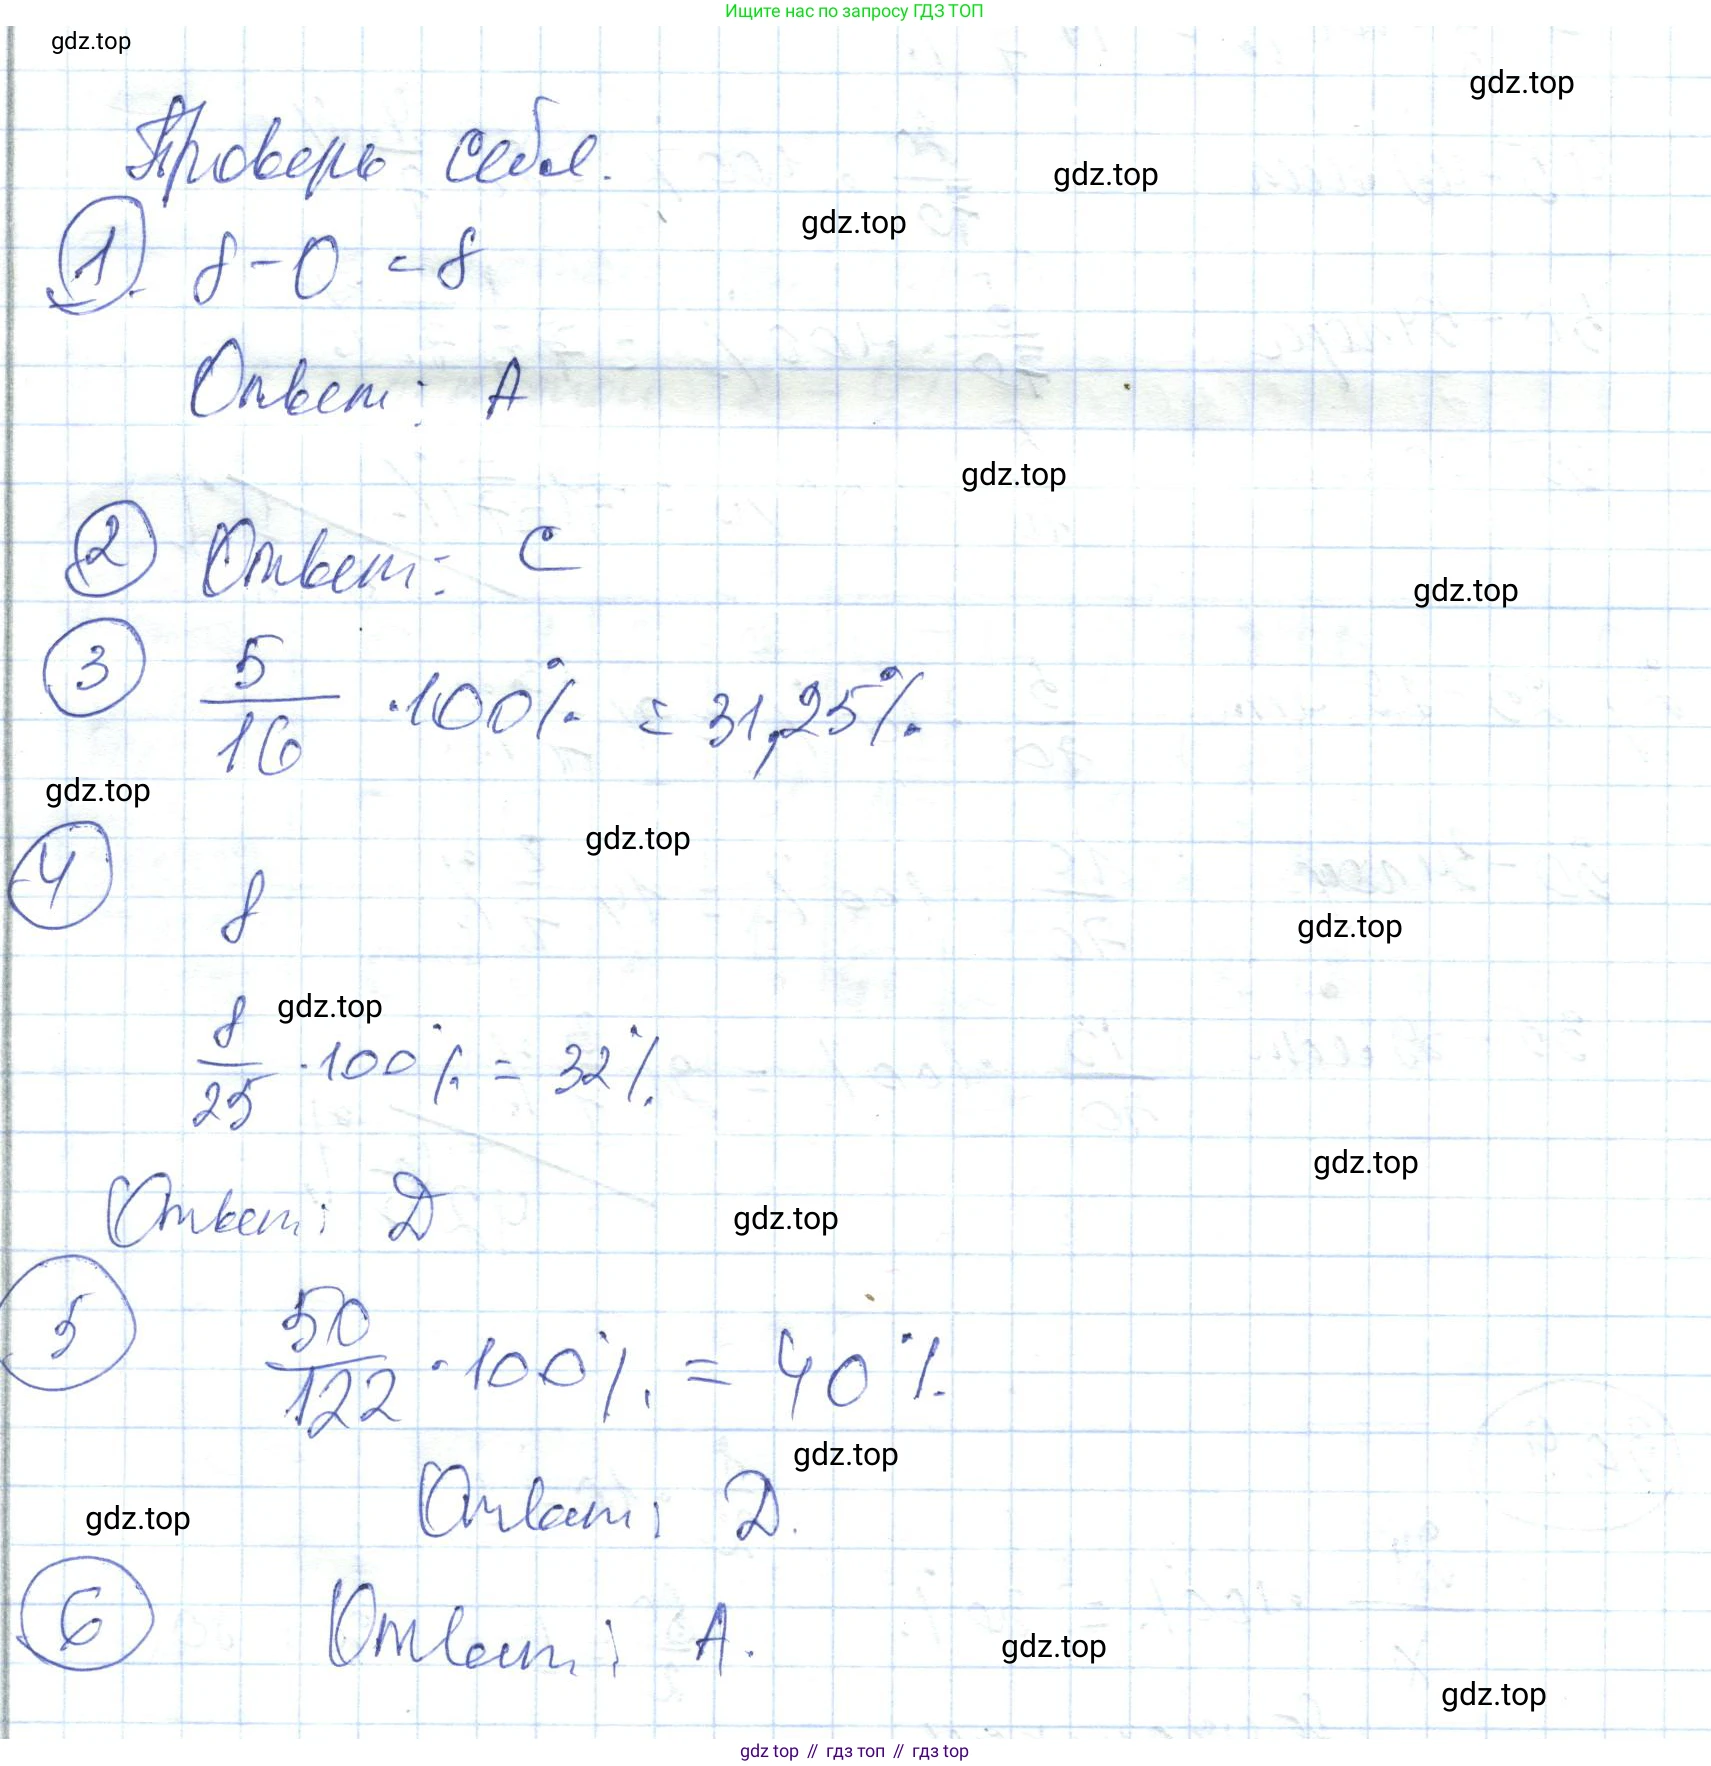 Ищите нас по запросу ГДЗ ТОП
gdz.top
gdz.top
Проверь себя.
gdz.top
gdz.top
1. 8 - 0 = 8
Ответ: А
gdz.top
2 Ответ: С
gdz.top
3 5/16 · 100% = 31,25%
gdz.top
gdz.top
4 8
gdz.top
gdz.top
8/25 · 100% = 32%
gdz.top
Ответ: Д
gdz.top
5 50/122 · 100% = 40%
gdz.top
Ответ: Д.
gdz.top
6 Ответ: А.
gdz.top
gdz.top
gdz top // гдз топ // гдз top